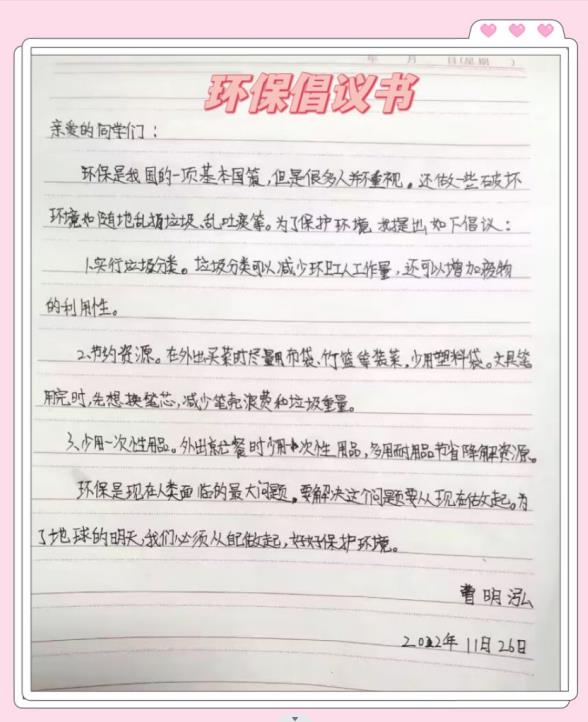 年 月 日(星期 )
环保倡议书
亲爱的同学们：
环保是我国的一项基本国策，但是很多人并不重视。还做一些破坏
环境如随地乱扔垃圾、乱吐痰等。为了保护环境 我提出如下倡议：
1.实行垃圾分类。垃圾分类可以减少环卫工人工作量，还可以增加废物
的利用性。
2.节约资源。在外出买菜时尽量用布袋、竹篮等装菜，少用塑料袋。文具笔
用完时，先想换笔芯，减少笔壳浪费和垃圾重量。
3.少用一次性用品。外出就餐时少用一次性用品，多用耐用品节省降解资源。
环保是现在人类面临的最大问题。要解决这个问题要从现在做起。为
了地球的明天，我们必须从自己做起，好好保护环境。
曹明泓
2022年11月26日